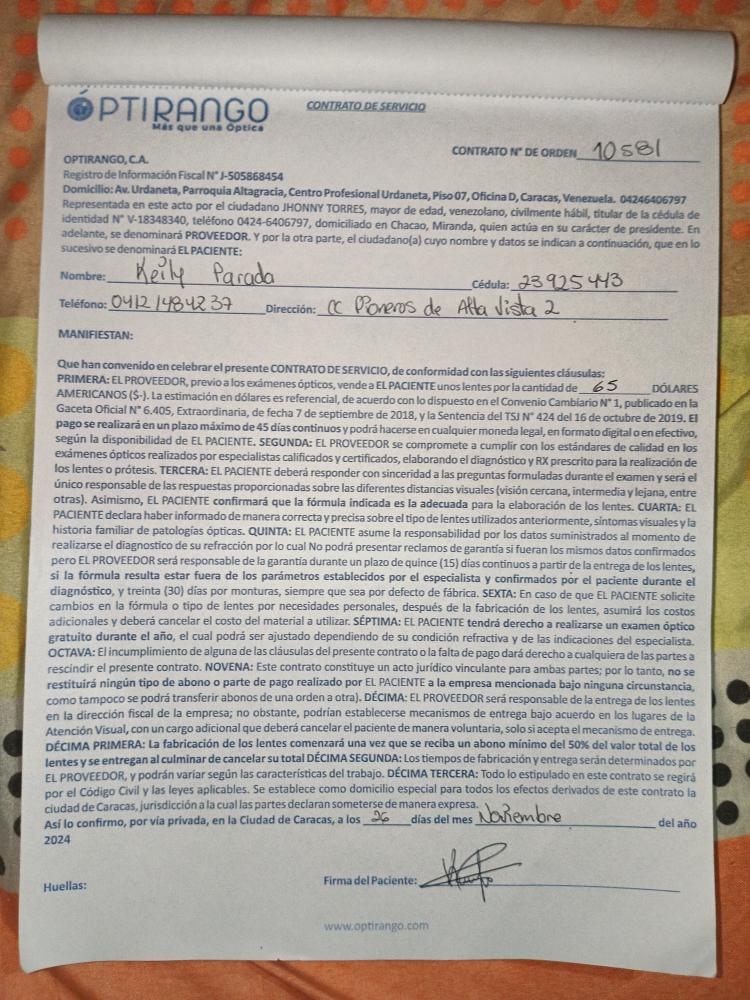 ÓPTIRANGO
Más que una Óptica
CONTRATO DE SERVICIO
CONTRATO N° DE ORDEN 10581
OPTIRANGO, C.A.
Registro de Información Fiscal N° J-505868454
Domicilio: Av. Urdaneta, Parroquia Altagracia, Centro Profesional Urdaneta, Piso 07, Oficina D, Caracas, Venezuela. 04246406797
Representada en este acto por el ciudadano JHONNY TORRES, mayor de edad, venezolano, civilmente hábil, titular de la cédula de
identidad N° V-18348340, teléfono 0424-6406797, domiciliado en Chacao, Miranda, quien actúa en su carácter de presidente. En
adelante, se denominará PROVEEDOR. Y por la otra parte, el ciudadano(a) cuyo nombre y datos se indican a continuación, que en lo
sucesivo se denominará EL PACIENTE:
Nombre: Keily Parada Cédula: 23925443
Teléfono: 04121484237 Dirección: CC Pioneros de Alta Vista 2
MANIFIESTAN:
Que han convenido en celebrar el presente CONTRATO DE SERVICIO, de conformidad con las siguientes cláusulas:
PRIMERA: EL PROVEEDOR, previo a los exámenes ópticos, vende a EL PACIENTE unos lentes por la cantidad de 65 DÓLARES
AMERICANOS ($-). La estimación en dólares es referencial, de acuerdo con lo dispuesto en el Convenio Cambiario N° 1, publicado en la
Gaceta Oficial N° 6.405, Extraordinaria, de fecha 7 de septiembre de 2018, y la Sentencia del TSJ N° 424 del 16 de octubre de 2019. El
pago se realizará en un plazo máximo de 45 días continuos y podrá hacerse en cualquier moneda legal, en formato digital o en efectivo,
según la disponibilidad de EL PACIENTE. SEGUNDA: EL PROVEEDOR se compromete a cumplir con los estándares de calidad en los
exámenes ópticos realizados por especialistas calificados y certificados, elaborando el diagnóstico y RX prescrito para la realización de
los lentes o prótesis. TERCERA: EL PACIENTE deberá responder con sinceridad a las preguntas formuladas durante el examen y será el
único responsable de las respuestas proporcionadas sobre las diferentes distancias visuales (visión cercana, intermedia y lejana, entre
otras). Asimismo, EL PACIENTE confirmará que la fórmula indicada es la adecuada para la elaboración de los lentes. CUARTA: EL
PACIENTE declara haber informado de manera correcta y precisa sobre el tipo de lentes utilizados anteriormente, síntomas visuales y la
historia familiar de patologías ópticas. QUINTA: EL PACIENTE asume la responsabilidad por los datos suministrados al momento de
realizarse el diagnostico de su refracción por lo cual No podrá presentar reclamos de garantía si fueran los mismos datos confirmados
pero EL PROVEEDOR será responsable de la garantía durante un plazo de quince (15) días continuos a partir de la entrega de los lentes,
si la fórmula resulta estar fuera de los parámetros establecidos por el especialista y confirmados por el paciente durante el
diagnóstico, y treinta (30) días por monturas, siempre que sea por defecto de fábrica. SEXTA: En caso de que EL PACIENTE solicite
cambios en la fórmula o tipo de lentes por necesidades personales, después de la fabricación de los lentes, asumirá los costos
adicionales y deberá cancelar el costo del material a utilizar. SÉPTIMA: EL PACIENTE tendrá derecho a realizarse un examen óptico
gratuito durante el año, el cual podrá ser ajustado dependiendo de su condición refractiva y de las indicaciones del especialista.
OCTAVA: El incumplimiento de alguna de las cláusulas del presente contrato o la falta de pago dará derecho a cualquiera de las partes a
rescindir el presente contrato. NOVENA: Este contrato constituye un acto jurídico vinculante para ambas partes; por lo tanto, no se
restituirá ningún tipo de abono o parte de pago realizado por EL PACIENTE a la empresa mencionada bajo ninguna circunstancia,
como tampoco se podrá transferir abonos de una orden a otra). DÉCIMA: EL PROVEEDOR será responsable de la entrega de los lentes
en la dirección fiscal de la empresa; no obstante, podrían establecerse mecanismos de entrega bajo acuerdo en los lugares de la
Atención Visual, con un cargo adicional que deberá cancelar el paciente de manera voluntaria, solo si acepta el mecanismo de entrega.
DÉCIMA PRIMERA: La fabricación de los lentes comenzará una vez que se reciba un abono mínimo del 50% del valor total de los
lentes y se entregan al culminar de cancelar su total DÉCIMA SEGUNDA: Los tiempos de fabricación y entrega serán determinados por
EL PROVEEDOR, y podrán variar según las características del trabajo. DÉCIMA TERCERA: Todo lo estipulado en este contrato se regirá
por el Código Civil y las leyes aplicables. Se establece como domicilio especial para todos los efectos derivados de este contrato la
ciudad de Caracas, jurisdicción a la cual las partes declaran someterse de manera expresa.
Así lo confirmo, por vía privada, en la Ciudad de Caracas, a los 26 días del mes Noviembre del año
2024
Huellas: Firma del Paciente:
www.optirango.com